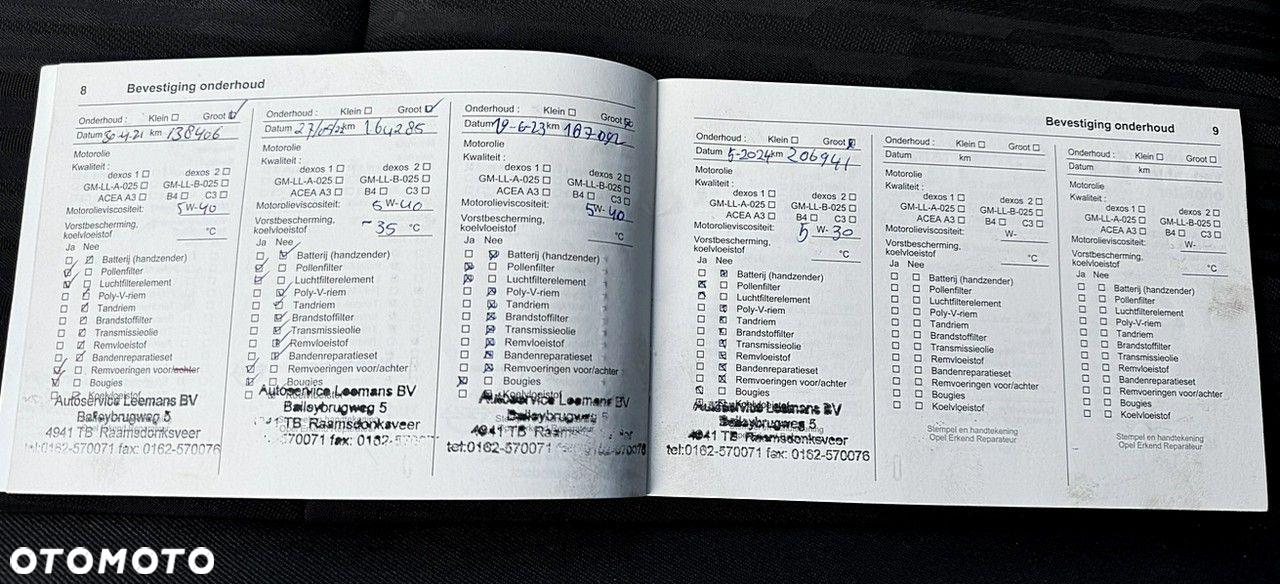 8 Bevestiging onderhoud
Onderhoud : Klein Groot
Datum 30-4-21 km 138406
Motorolie
Kwaliteit :
dexos 1 dexos 2
GM-LL-A-025 GM-LL-B-025
ACEA A3 B4 C3
Motorolieviscositeit: 5W-40
Vorstbescherming,
koelvloeistof °C
Ja Nee
Batterij (handzender)
Pollenfilter
Luchtfilterelement
Poly-V-riem
Tandriem
Brandstoffilter
Transmissieolie
Remvloeistof
Bandenreparatieset
Remvoeringen voor/achter
Bougies
Koelvloeistof
Autoservice Leemans BV
Baileybrugweg 5
4941 TB Raamsdonksveer
tel:0162-570071 fax: 0162-570076
Onderhoud : Klein Groot
Datum km 164285
Motorolie
Kwaliteit :
dexos 1 dexos 2
GM-LL-A-025 GM-LL-B-025
ACEA A3 B4 C3
Motorolieviscositeit: 5 W-40
Vorstbescherming,
koelvloeistof -35 °C
Ja Nee
Batterij (handzender)
Pollenfilter
Luchtfilterelement
Poly-V-riem
Tandriem
Brandstoffilter
Transmissieolie
Remvloeistof
Bandenreparatieset
Remvoeringen voor/achter
Bougies
Autoservice Leemans BV
Baileybrugweg 5
TB Raamsdonksveer
570071 fax: 0162-570
Onderhoud : Klein Groot
Datum 19-6-23 km 187092
Motorolie
Kwaliteit :
dexos 1 dexos 2
GM-LL-A-025 GM-LL-B-025
ACEA A3 B4 C3
Motorolieviscositeit: 5 W-40
Vorstbescherming,
koelvloeistof °C
Ja Nee
Batterij (handzender)
Pollenfilter
Luchtfilterelement
Poly-V-riem
Tandriem
Brandstoffilter
Transmissieolie
Remvloeistof
Bandenreparatieset
Remvoeringen voor/achter
Bougies
Koelvloeistof
Autoservice Leemans BV
Baileybrugweg 5
4941 TB
tel:0162-570071 fax: 0162-570076
Bevestiging onderhoud 9
Onderhoud : Klein Groot
Datum 5-2024 km 206941
Motorolie
Kwaliteit :
dexos 1 dexos 2
GM-LL-A-025 GM-LL-B-025
ACEA A3 B4 C3
Motorolieviscositeit: 5 W-30
Vorstbescherming,
koelvloeistof °C
Ja Nee
Batterij (handzender)
Pollenfilter
Luchtfilterelement
Poly-V-riem
Tandriem
Brandstoffilter
Transmissieolie
Remvloeistof
Bandenreparatieset
Remvoeringen voor/achter
Bougies
Koelvloeistof
Autoservice Leemans BV
Baileybrugweg 5
4941 TB Raamsdonksveer
tel:0162-570071 fax: 0162-570076
Onderhoud : Klein Groot
Datum km
Motorolie
Kwaliteit :
dexos 1 dexos 2
GM-LL-A-025 GM-LL-B-025
ACEA A3 B4 C3
Motorolieviscositeit: W-
Vorstbescherming,
koelvloeistof °C
Ja Nee
Batterij (handzender)
Pollenfilter
Luchtfilterelement
Poly-V-riem
Tandriem
Brandstoffilter
Transmissieolie
Remvloeistof
Bandenreparatieset
Remvoeringen voor/achter
Bougies
Koelvloeistof
Stempel en handtekening
Opel Erkend Reparateur
Onderhoud : Klein Groot
Datum km
Motorolie
Kwaliteit :
dexos 1 dexos 2
GM-LL-A-025 GM-LL-B-025
ACEA A3 B4 C3
Motorolieviscositeit: W-
Vorstbescherming,
koelvloeistof °C
Ja Nee
Batterij (handzender)
Pollenfilter
Luchtfilterelement
Poly-V-riem
Tandriem
Brandstoffilter
Transmissieolie
Remvloeistof
Bandenreparatieset
Remvoeringen voor/achter
Bougies
Koelvloeistof
Stempel en handtekening
Opel Erkend Reparateur
OTOMOTO